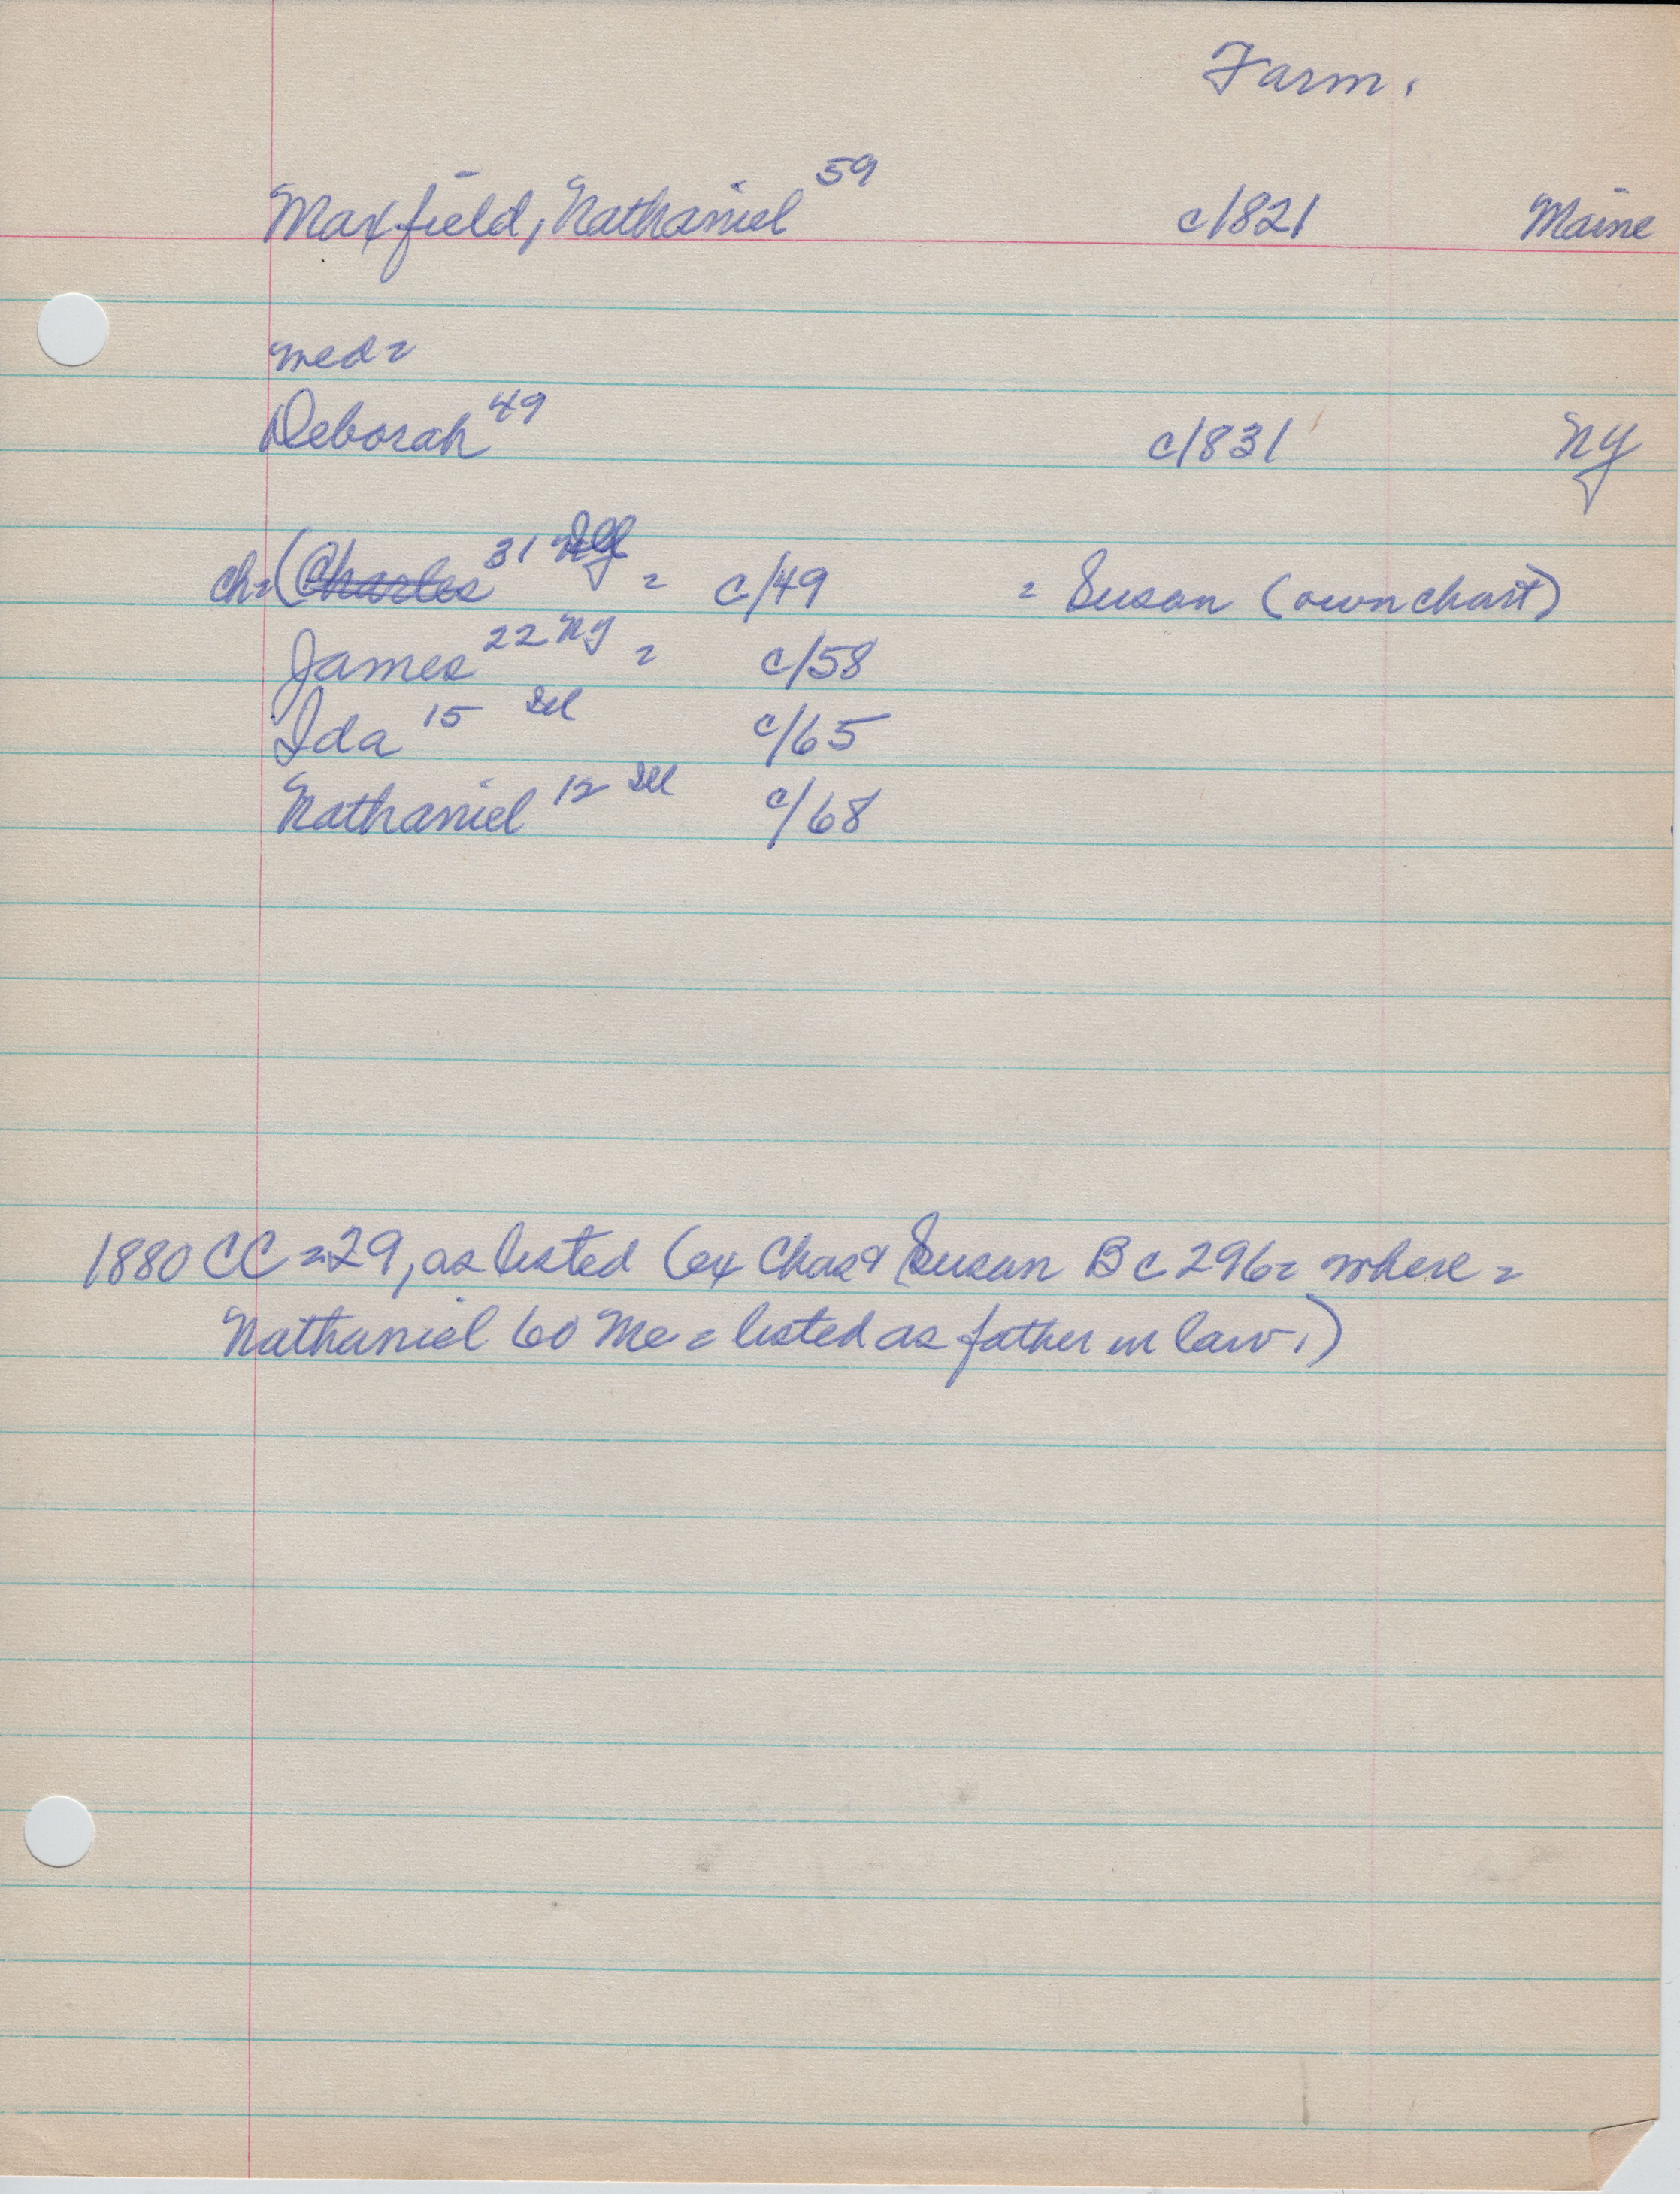 Farm.
Maxfield, Nathaniel 59 c/821 Maine
med =
Deborah 49 c/831 NY
ch = (Charles 31 = c/49 = Susan (own chart)
James 22 NY = c/58
Ida 15 Ill c/65
Nathaniel 12 Ill c/68
1880 CC = 29, as listed (ex Chas & Susan BC 296 = where =
Nathaniel 60 Me = listed as father in law.)